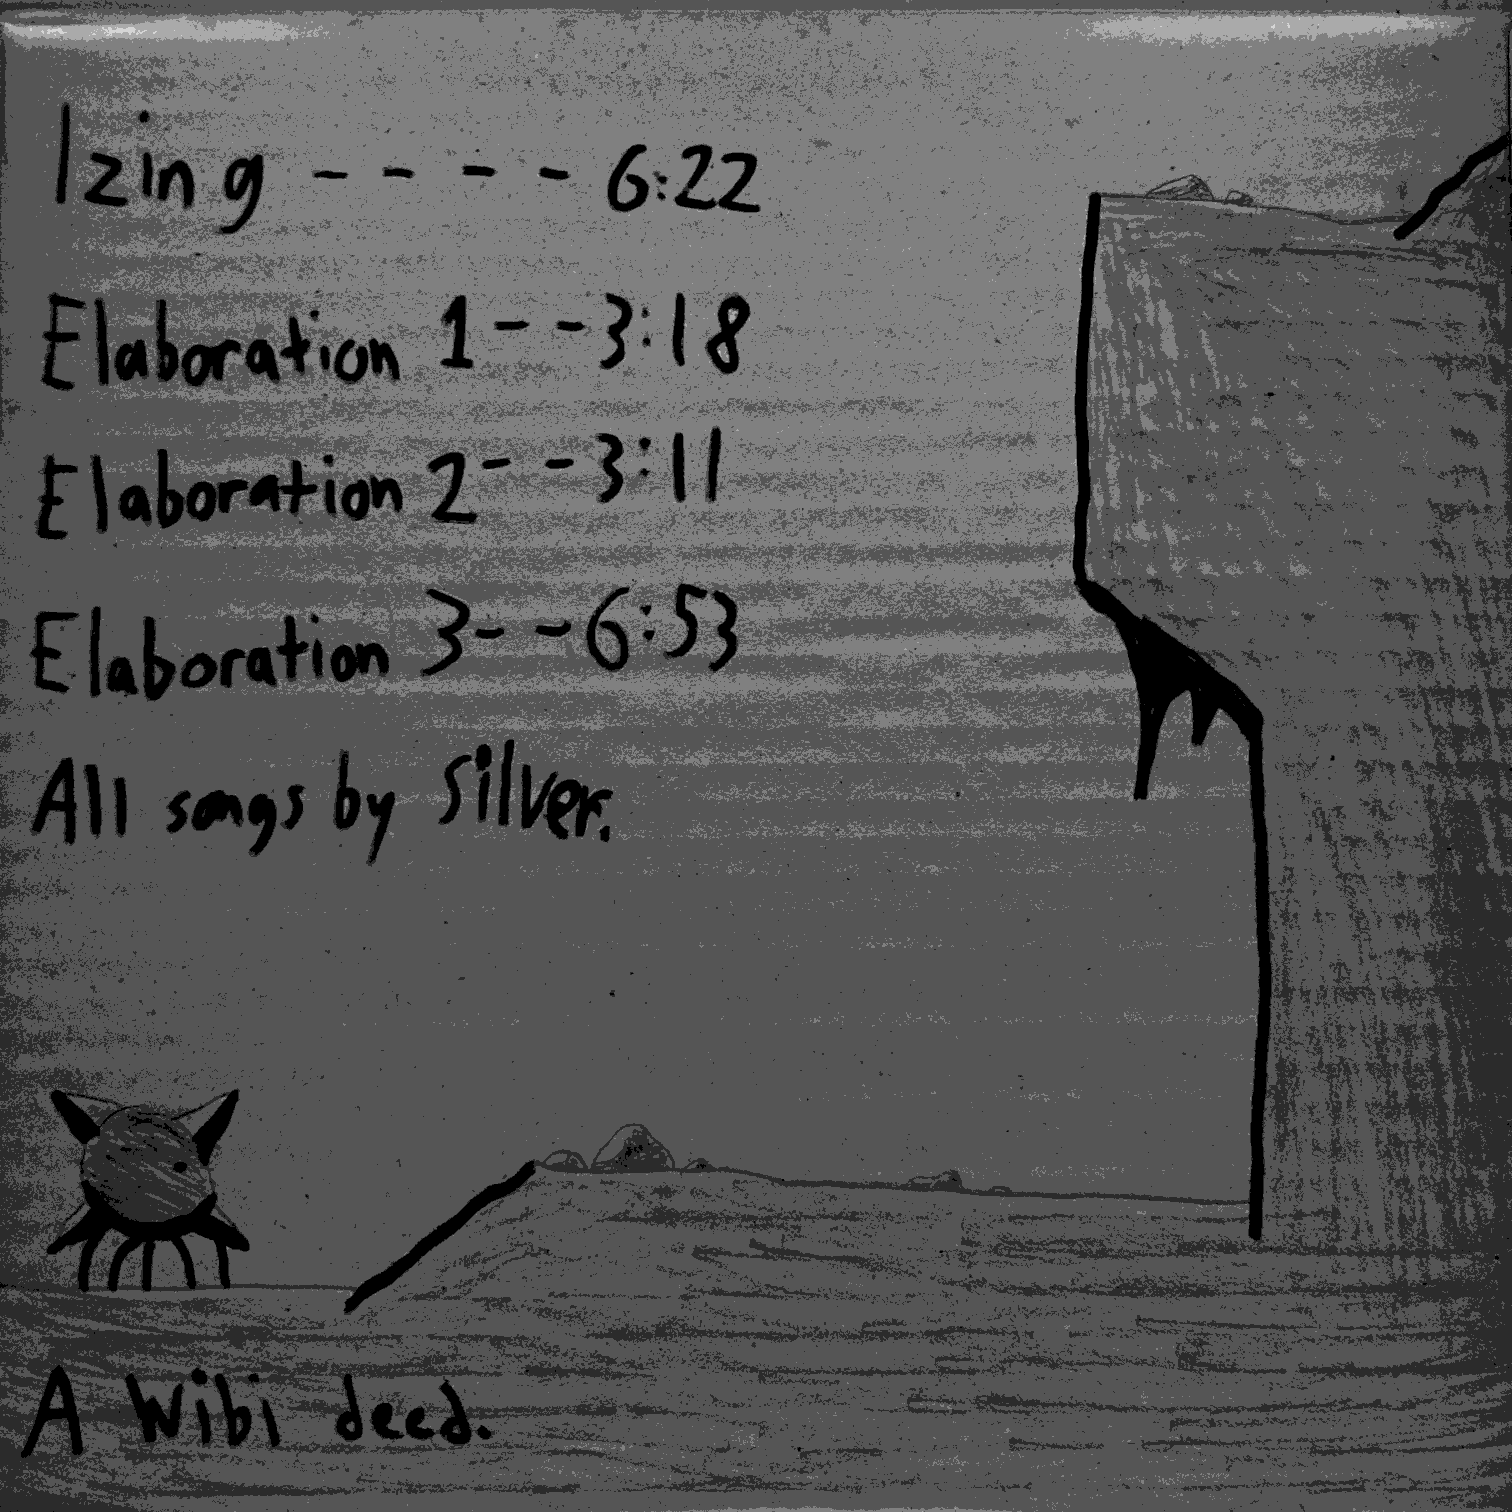 Izing - - - - 6:22
Elaboration 1 - - 3:18
Elaboration 2 - - 3:11
Elaboration 3 - - 6:53
All songs by Silver.
A Wibi deed.